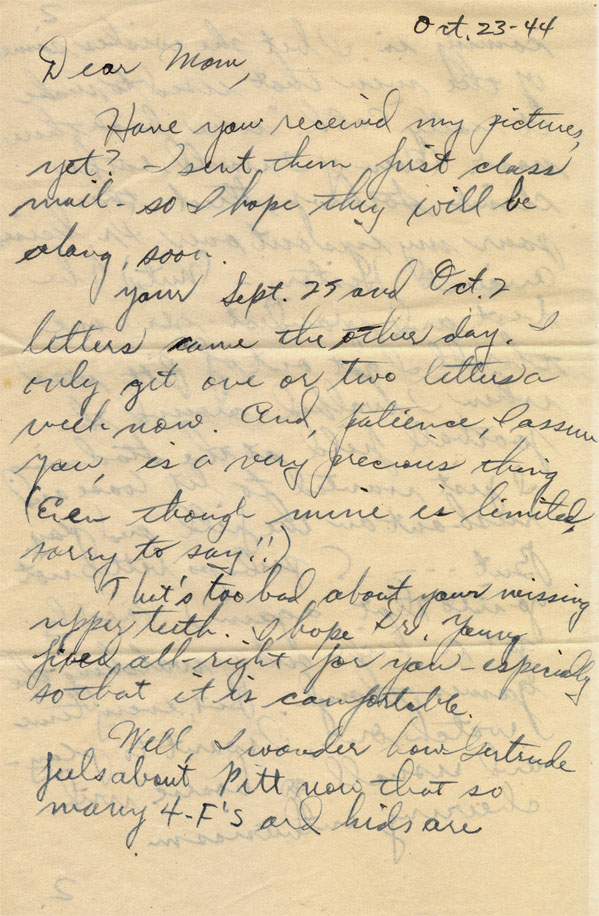 Oct. 23-44
Dear Mom,
Have you received my pictures,
yet? - I sent them first class
mail - so I hope they will be
along, soon.
Your Sept. 25 and Oct. 2
letters came the other day. I
only get one or two letters a
week now. And, patience, I assure
you, is a very precious thing
(Even though mine is limited,
sorry to say!!)
That's too bad about your missing
upper teeth. I hope Dr. Young
fixes all-right for you - especially
so that it is comfortable.
Well, I wonder how Gertrude
feels about Pitt now that so
many 4-F's and kids are